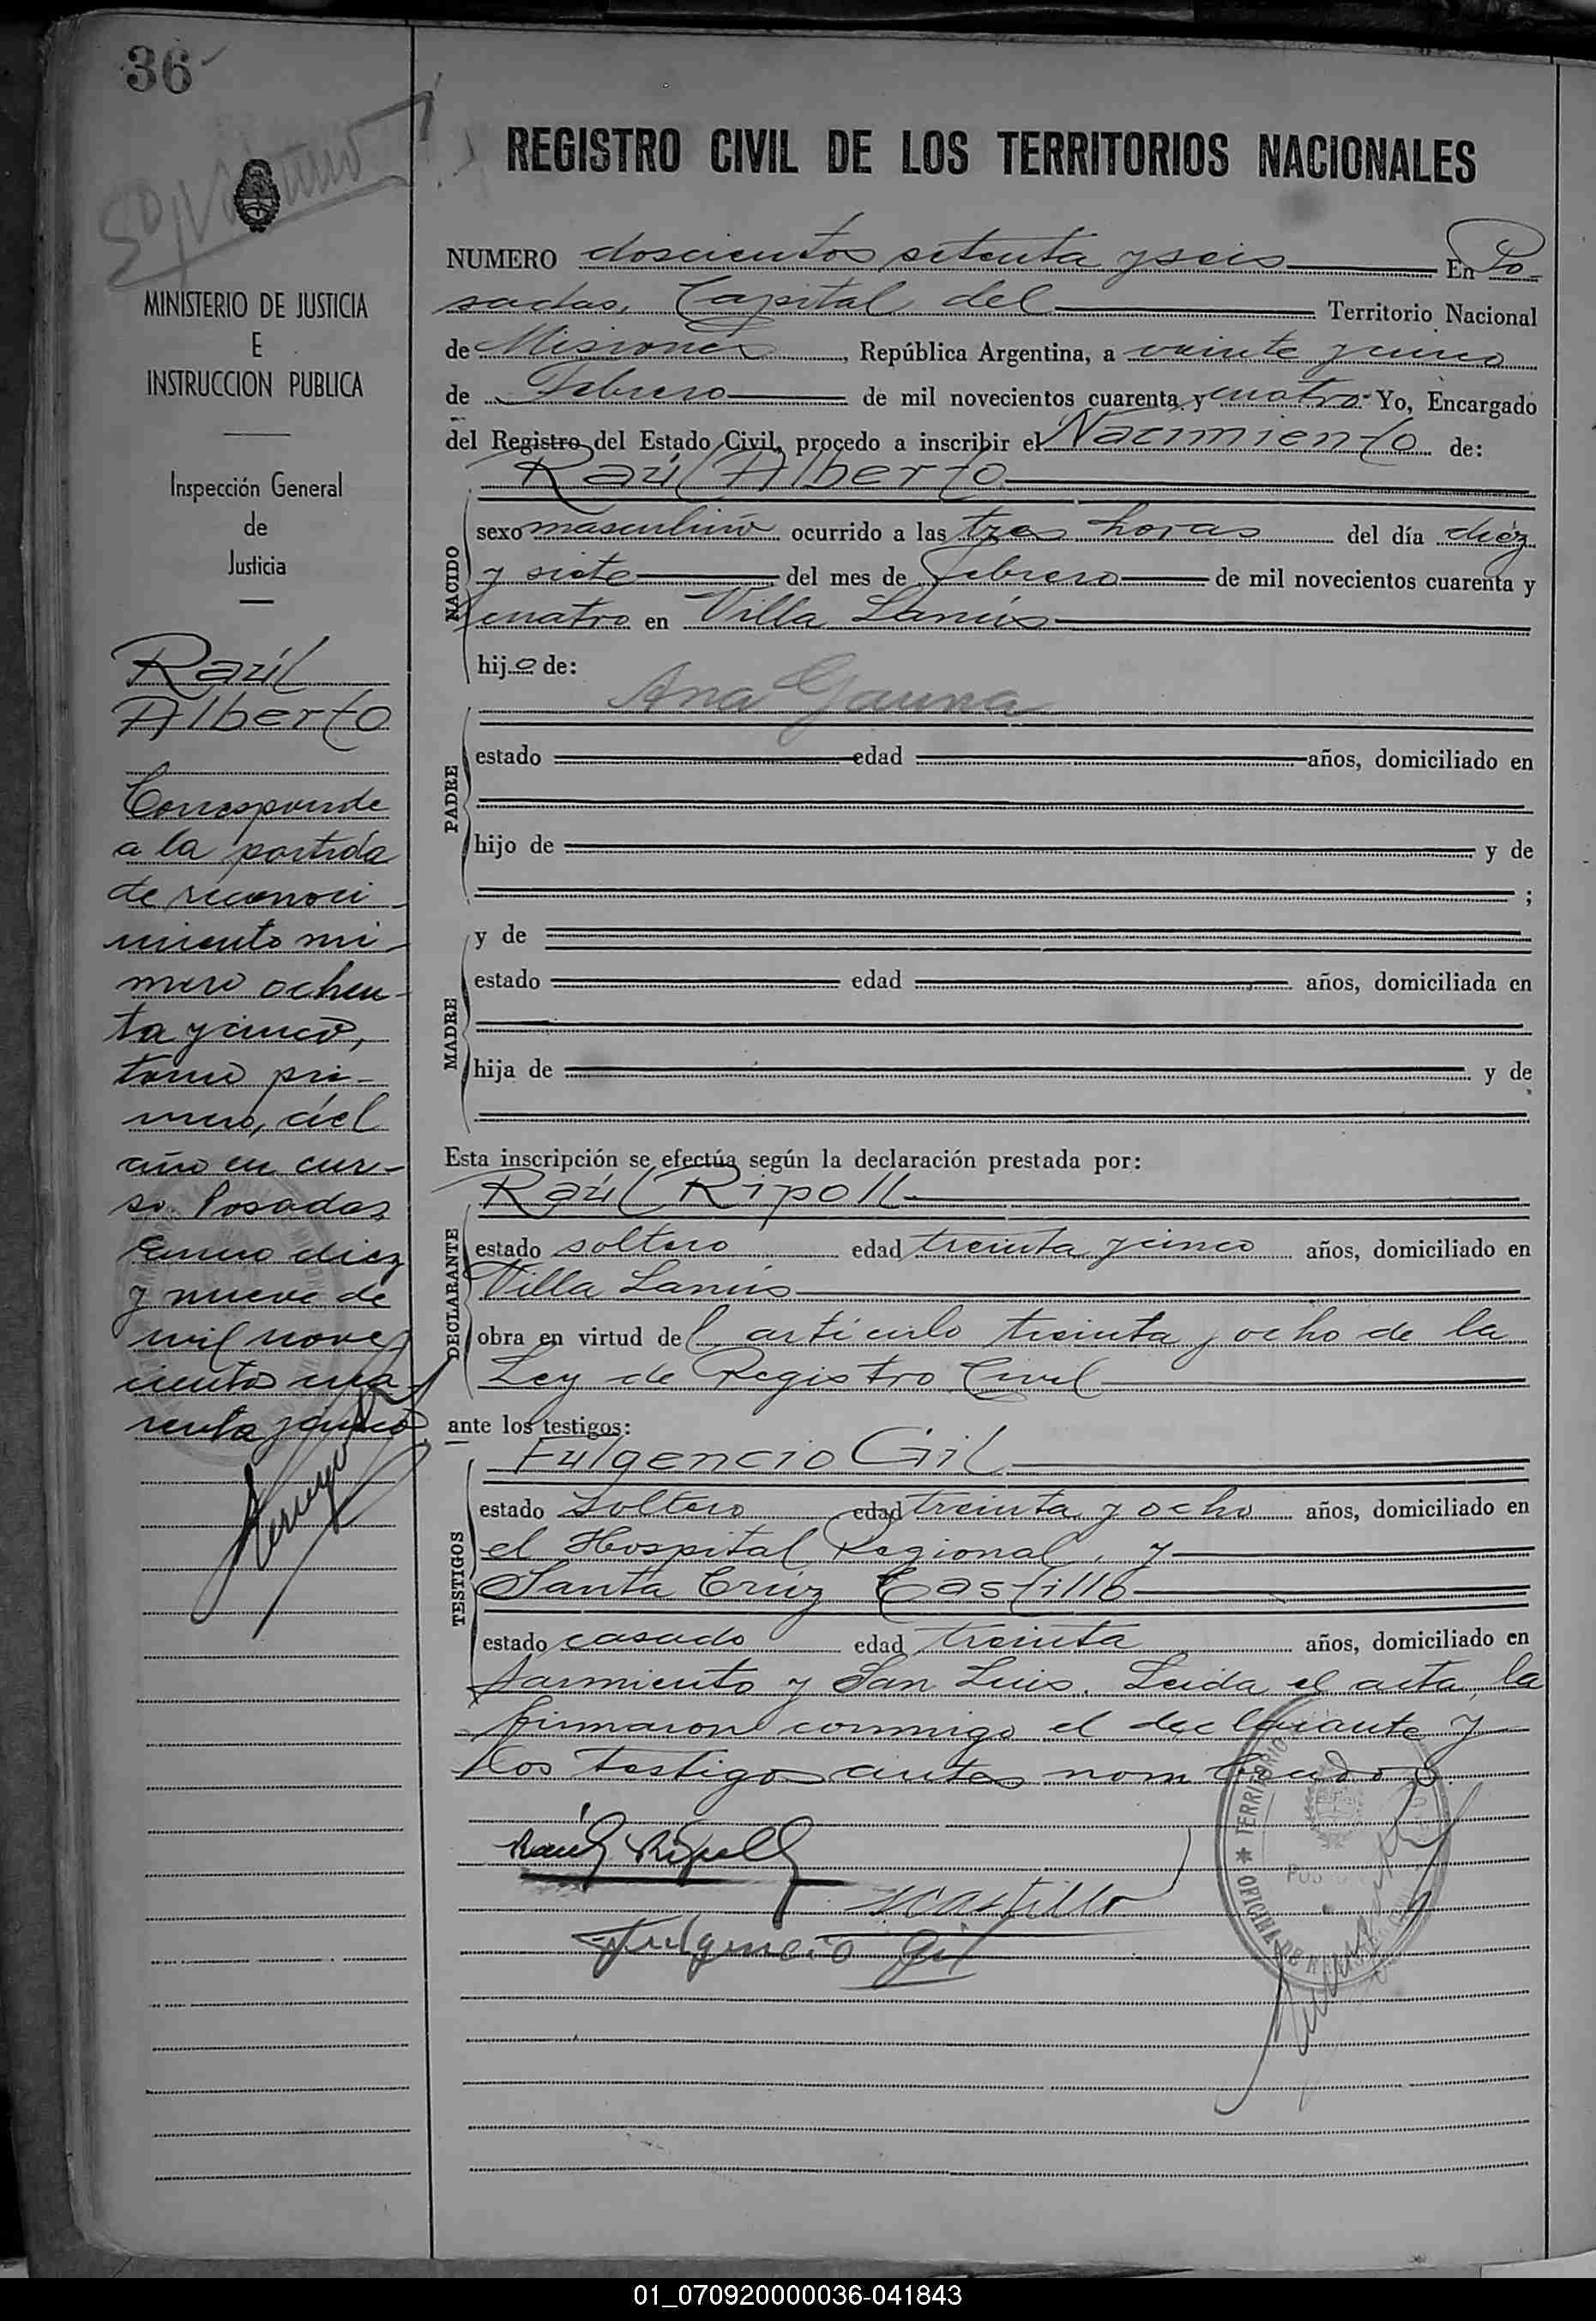 36
REGISTRO CIVIL DE LOS TERRITORIOS NACIONALES
MINISTERIO DE JUSTICIA
E
INSTRUCCION PUBLICA
Inspección General
de
Justicia
Raúl
Alberto
Corresponde
a la partida
de reconoci-
miento nú-
mero ochen-
ta y cinco,
tomo pri-
mero, del
año en cur-
so. Posadas
Enero diez
y nueve de
mil nove
cientos cua-
renta y cinco
NUMERO doscientos setenta y seis En Po-
sadas, Capital del Territorio Nacional
de Misiones, República Argentina, a veinte y cinco
de Febrero de mil novecientos cuarenta y cuatro Yo, Encargado
del Registro del Estado Civil, procedo a inscribir el Nacimiento de:
Raúl Alberto
NACIDO
sexo masculino ocurrido a las tres horas del día diéz
y siete del mes de Febrero de mil novecientos cuarenta y
cuatro en Villa Lanús
hijo de:
Ana Gauna
PADRE
estado edad años, domiciliado en
hijo de y de
;
MADRE
y de
estado edad años, domiciliada en
hija de y de
Esta inscripción se efectúa según la declaración prestada por:
Raúl Ripoll
DECLARANTE
estado soltero edad treinta y cinco años, domiciliado en
Villa Lanús
obra en virtud del artículo treinta y ocho de la
Ley de Registro Civil
ante los testigos:
Fulgencio Gil
TESTIGOS
estado soltero edad treinta y ocho años, domiciliado en
el Hospital Regional, y
Santa Cruz Castillo
estado casado edad treinta años, domiciliado en
Sarmiento y San Luis. Leida el acta, la
firmaron conmigo el declarante y
los testigos antes nombrados.
Raúl Ripoll
SCastillo
Fulgencio Gil
TERRITORIO
OFICINA DE
01_070920000036-041843